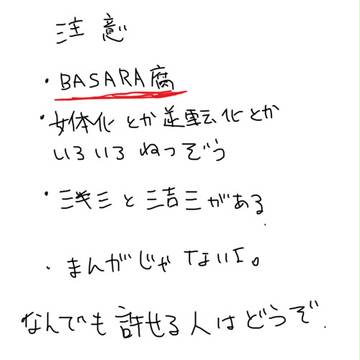 注意
・BASARA腐
・女体化とか逆転化とか
いろいろねつぞう
・三幾三と三吉三がある
・まんがじゃない。
なんでも許せる人はどうぞ